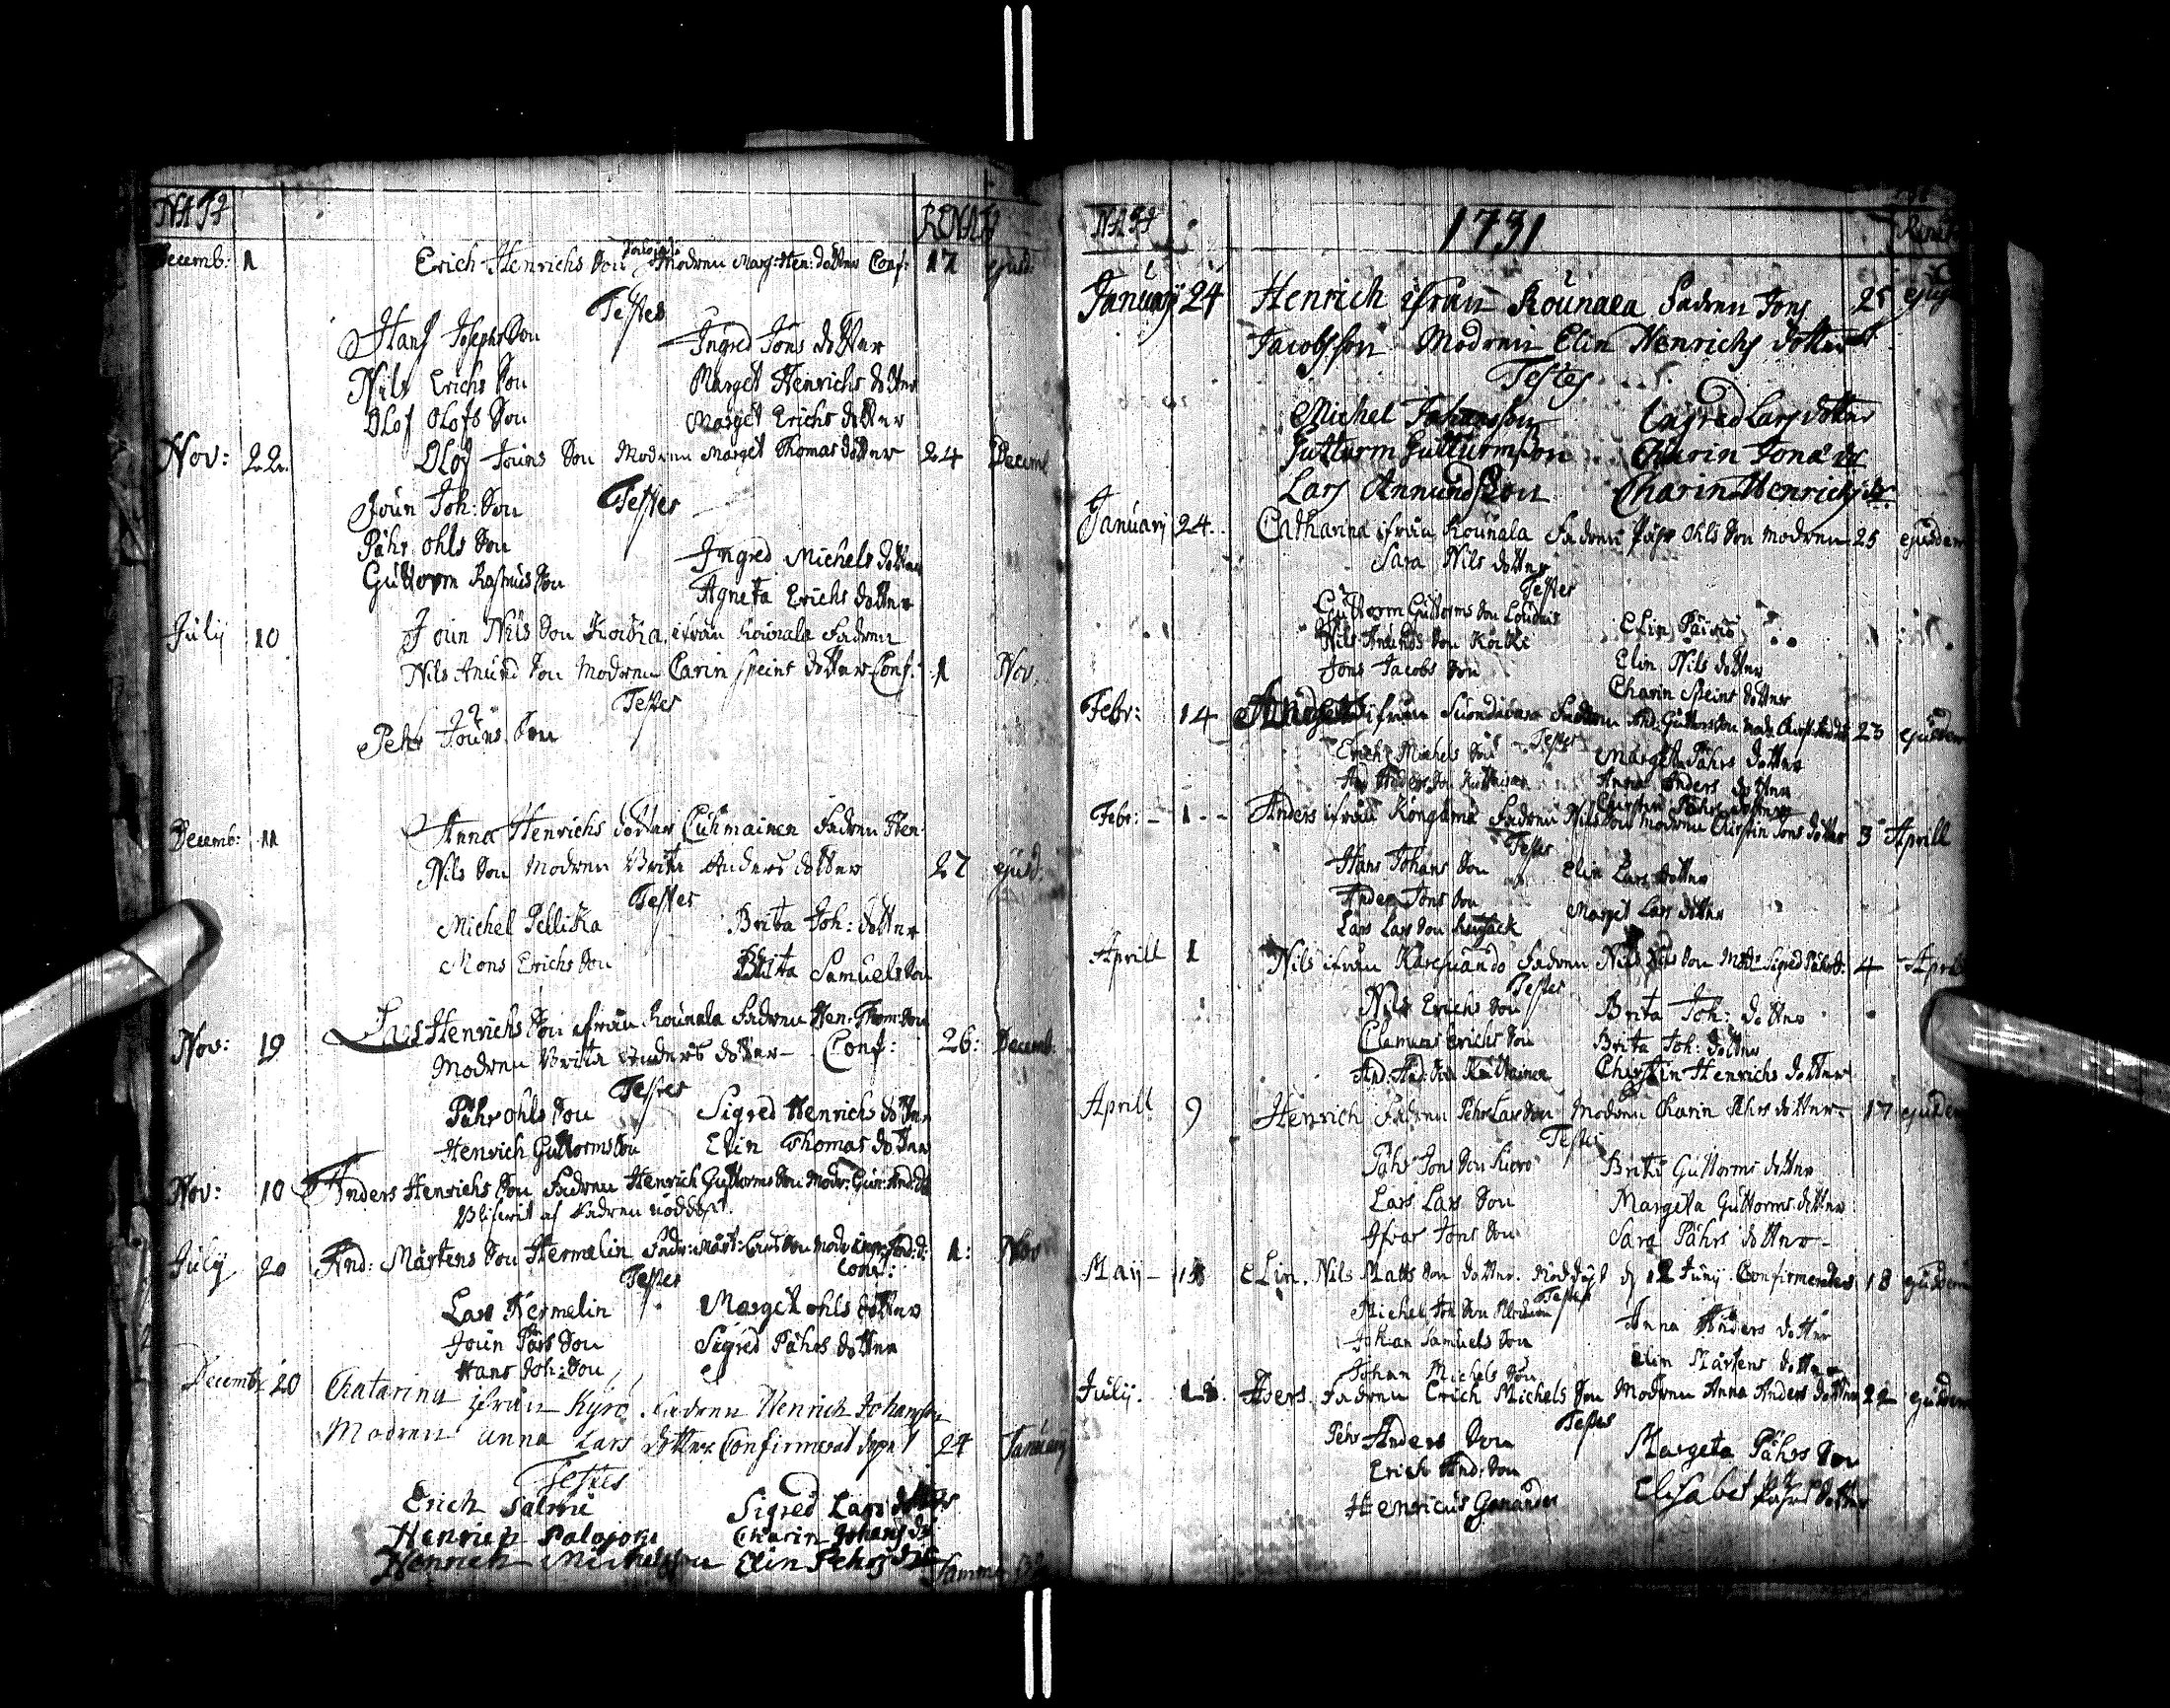 NATI RENATI
Decemb: 1 Erich Henrichs Son Palojoki Modren Marg: Hen: dotter Conf: 17 ejusd:
Testes
Hans Josephs Son Ingred Jons dotter
Nils Erichs Son Marget Henrichs dotter
Olof Olofs Son Marget Erichs dotter
Nov: 22. Olof Jouns Son Modren Marget Thomas dotter 24 Decemb
Testes
Joun Joh: Son
Påhr Ohls Son Ingred Michels dotter
Guttorm Rasmus Son Agneta Erichs dotter
Julij 10 Joun Nils Son ifrån Rounala Fadren
Nils Anund Son Modren Carin Speins dotter Conf: 1 Nov.
Testes
Pehr Jouns Son
Decemb: 11 Anna Henrichs dotter Cuhmainen Fadren Hen:
Nils Son Modren Brita Anders dotter 27 ejusd.
Testes
Michel Pellika Brita Joh: dotter
Mons Erichs Son Brita Samuels Son
Nov: 19 Henrichs Son ifrån Rounala Fadren Hen: Thom: Son
Modren Brita Anders dotter - Conf: 26: Decemb:
Testes
Påhr Ohls Son Sigred Henrichs dotter
Henrich Guttorms Son Elin Thomas dotter
Nov: 10 Anders Henrichs Son Fadren Henrich Guttorms Son Modr: Gun: And: dr
Blifwit af Fadren nöddöpt.
July 20 And: Mårtens Son Hermelin Fadr: Mårt: Lars Son Modr And: d: 1: Nov
Conf:
Testes
Lars Hermelin Marget Ohls dotter
Joun Pårs Son Sigred Påhrs dotter
Hans Joh: Son
Decemb: 20 Chatarina ifrån Kyrö Fadren Henrich Johansson
Modren Anna Lars dotter Confirmerat dopet 24 January
Testes
Erich Salmi Sigred Lars dotter
Henrich Palojoki Charin Johans dr
Henrich Michelsson Elin Pehrs dr
NATI 1731 Renati
Januarij 24 Henrich ifrån Rounala Fadren Jons 25 ejusd
Jacobsson Modren Elin Henrichs dotter
Testes
Michel Johansson Ingred Lars dotter
Gutturm Gutturmson Charin Jona dr
Lars Annundsson Charin Henrichs dr
Januarij 24. Catharina ifrån Rounala Fadren Påhr Ohls Son Modren 25 ejusdem
Sara Nils dotter
Testes
Guttorm Guttorms Son Elin Päiviö
Nils Anunds Son Elin Nils dotter
Jons Jacobs Son Charin Speins dotter
Febr: 14 ifrån Suondavara Fadren And: Guttorms Son Mod: Christ: And: dr 23 ejusdem
Testes
Erich Michels Son Marget Påhrs dotter
And Anders Son Anna Anders dotter
Chirstin Påhrs dotter
Febr: - 1 - - Anders ifrån Köngämä Fadren Nils Son Modren Chirstin Jons dotter 3 Aprill
Testes
Hans Johans Son Elin Lars dotter
Anders Jons Son Marget Lars dotter
Lars Lars Son
Aprill 1 Nils ifrån Karesuando Fadren Nils Nils Son Modr Sigred Påhr d: 4 Aprill
Testes
Nils Erichs Son Brita Joh: dotter
Clemens Erichs Son Brita Joh: dotter
And: And: Son Chirstin Henrichs dotter
Aprill 9 Henrich Fadren Pehr Lars Son Modren Karin Pehrs dotter 17 ejusdem
Testes
Påhr Jons Son Brita Guttorms dotter
Lars Lars Son Margeta Guttorms dotter
Ifvar Jons Son Sara Påhrs dotter -
Maij - 18 Elin. Nils Matts Son dotter. Nöddöpt d 12 Junij. Confirmerades 18 ejusdem
Testes
Michel Joh Son Anna Anders dotter
Johan Samuels Son Elin Mårtens dotter
Johan Michels Son
Julij. 18. Aders. Fadren Erich Michels Son Modren Anna Anders dotter 22 ejusdem
Testes
Pehr Anders Son Margeta Påhrs Son
Erich And: Son Elisabet Påhrs dotter
Henricus Ganander